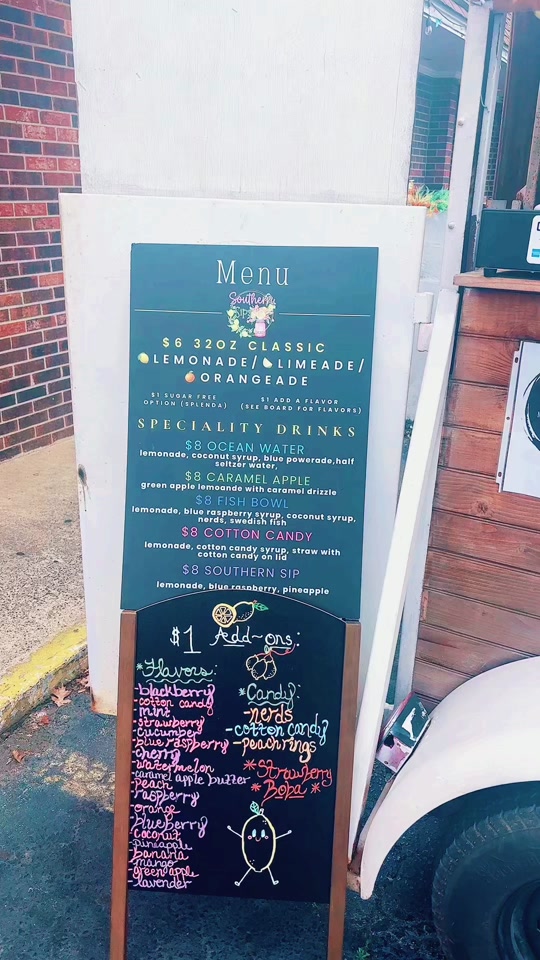 Menu
Southern
Sips
$6 32OZ CLASSIC
LEMONADE/ LIMEADE/
ORANGEADE
$1 SUGAR FREE
OPTION (SPLENDA)
$1 ADD A FLAVOR
(SEE BOARD FOR FLAVORS)
SPECIALITY DRINKS
$8 OCEAN WATER
lemonade, coconut syrup, blue powerade,half
seltzer water,
$8 CARAMEL APPLE
green apple lemoande with caramel drizzle
$8 FISH BOWL
lemonade, blue raspberry syrup, coconut syrup,
nerds, swedish fish
$8 COTTON CANDY
lemonade, cotton candy syrup, straw with
cotton candy on lid
$8 SOUTHERN SIP
lemonade, blue raspberry, pineapple
$1 Add-ons:
*Flavors:
-blackberry
-cotton candy
-mint
-strawberry
-cucumber
-blue raspberry
-cherry
-watermelon
-caramel apple butter
-peach
-raspberry
-orange
-blueberry
-coconut
-pineapple
-banana
-mango
-green apple
-lavender
*Candy:
-nerds
-cotton candy
-peach rings
*Strawberry
*Boba *